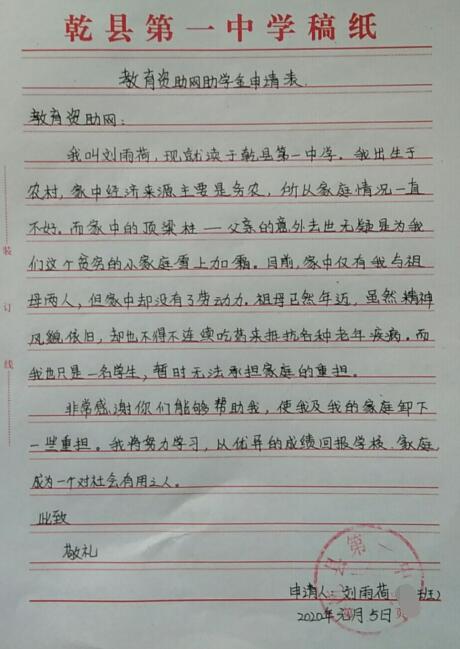 乾县第一中学稿纸
教育资助网助学金申请表.
教育资助网：
我叫刘雨荷，现就读于乾县第一中学。我出生于
农村，家中经济来源主要是务农，所以家庭情况一直
不好。而家中的顶梁柱——父亲的意外去世无疑是为我
们这个贫穷的小家庭雪上加霜。目前，家中仅有我与祖
母两人，但家中却没有了劳动力。祖母已然年近，虽然精神
风貌依旧，却也不得不连续吃药来抵抗各种老年疾病。而
我也只是一名学生，暂时无法承担家庭的重担。
非常感谢你们能够帮助我，使我及我的家庭卸下
一些重担。我将努力学习，从优异的成绩回报学校、家庭，
成为一个对社会有用之人。
此致
敬礼
申请人：刘雨荷 班)
2020年元月5日
装
订
线
县第一中